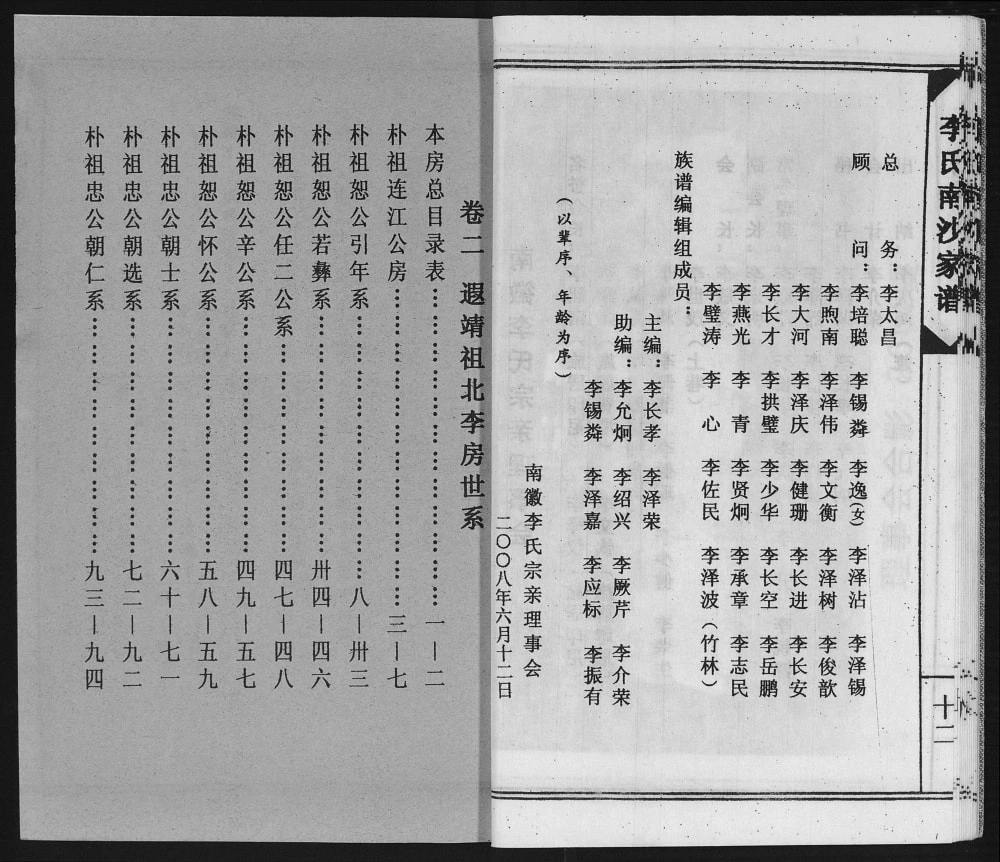 李氏南沙家谱
十二
总 务：李太昌
顾 问：李培聪 李锡粦 李逸（女） 李泽沾 李泽锡
李煦南 李泽伟 李文衡 李泽树 李俊歆
李大河 李泽庆 李健珊 李长进 李长安
李长才 李拱璧 李少华 李长空 李岳鹏
李燕光 李 青 李贤炯 李承章 李志民
李璧涛 李 心 李佐民 李泽波（竹林）
族谱编辑组成员：
主编：李长孝 李泽荣
助编：李允炯 李绍兴 李厥芹 李介荣
李锡粦 李泽嘉 李应标 李振有
（以辈序、年龄为序）
南徽李氏宗亲理事会
二〇〇八年六月十二日
卷二 遐靖祖北李房世系
本房总目录表……………………………一—二
朴祖连江公房……………………………三—七
朴祖恕公引年系…………………………八—卅三
朴祖恕公若彝系………………………卅四—四六
朴祖恕公任二公系……………………四七—四八
朴祖恕公辛公系………………………四九—五七
朴祖恕公怀公系………………………五八—五九
朴祖忠公朝士系………………………六十—七一
朴祖忠公朝选系………………………七二—九二
朴祖忠公朝仁系………………………九三—九四